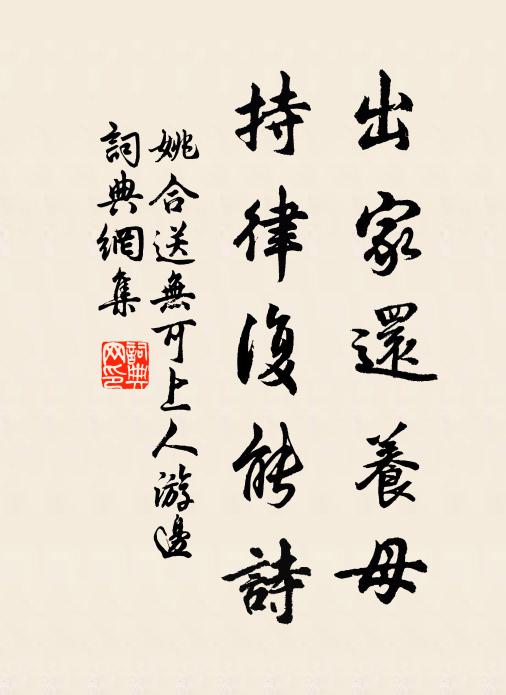 出家還養母
持律復能詩
姚合送無可上人游邊
詞典網集
詞典網印